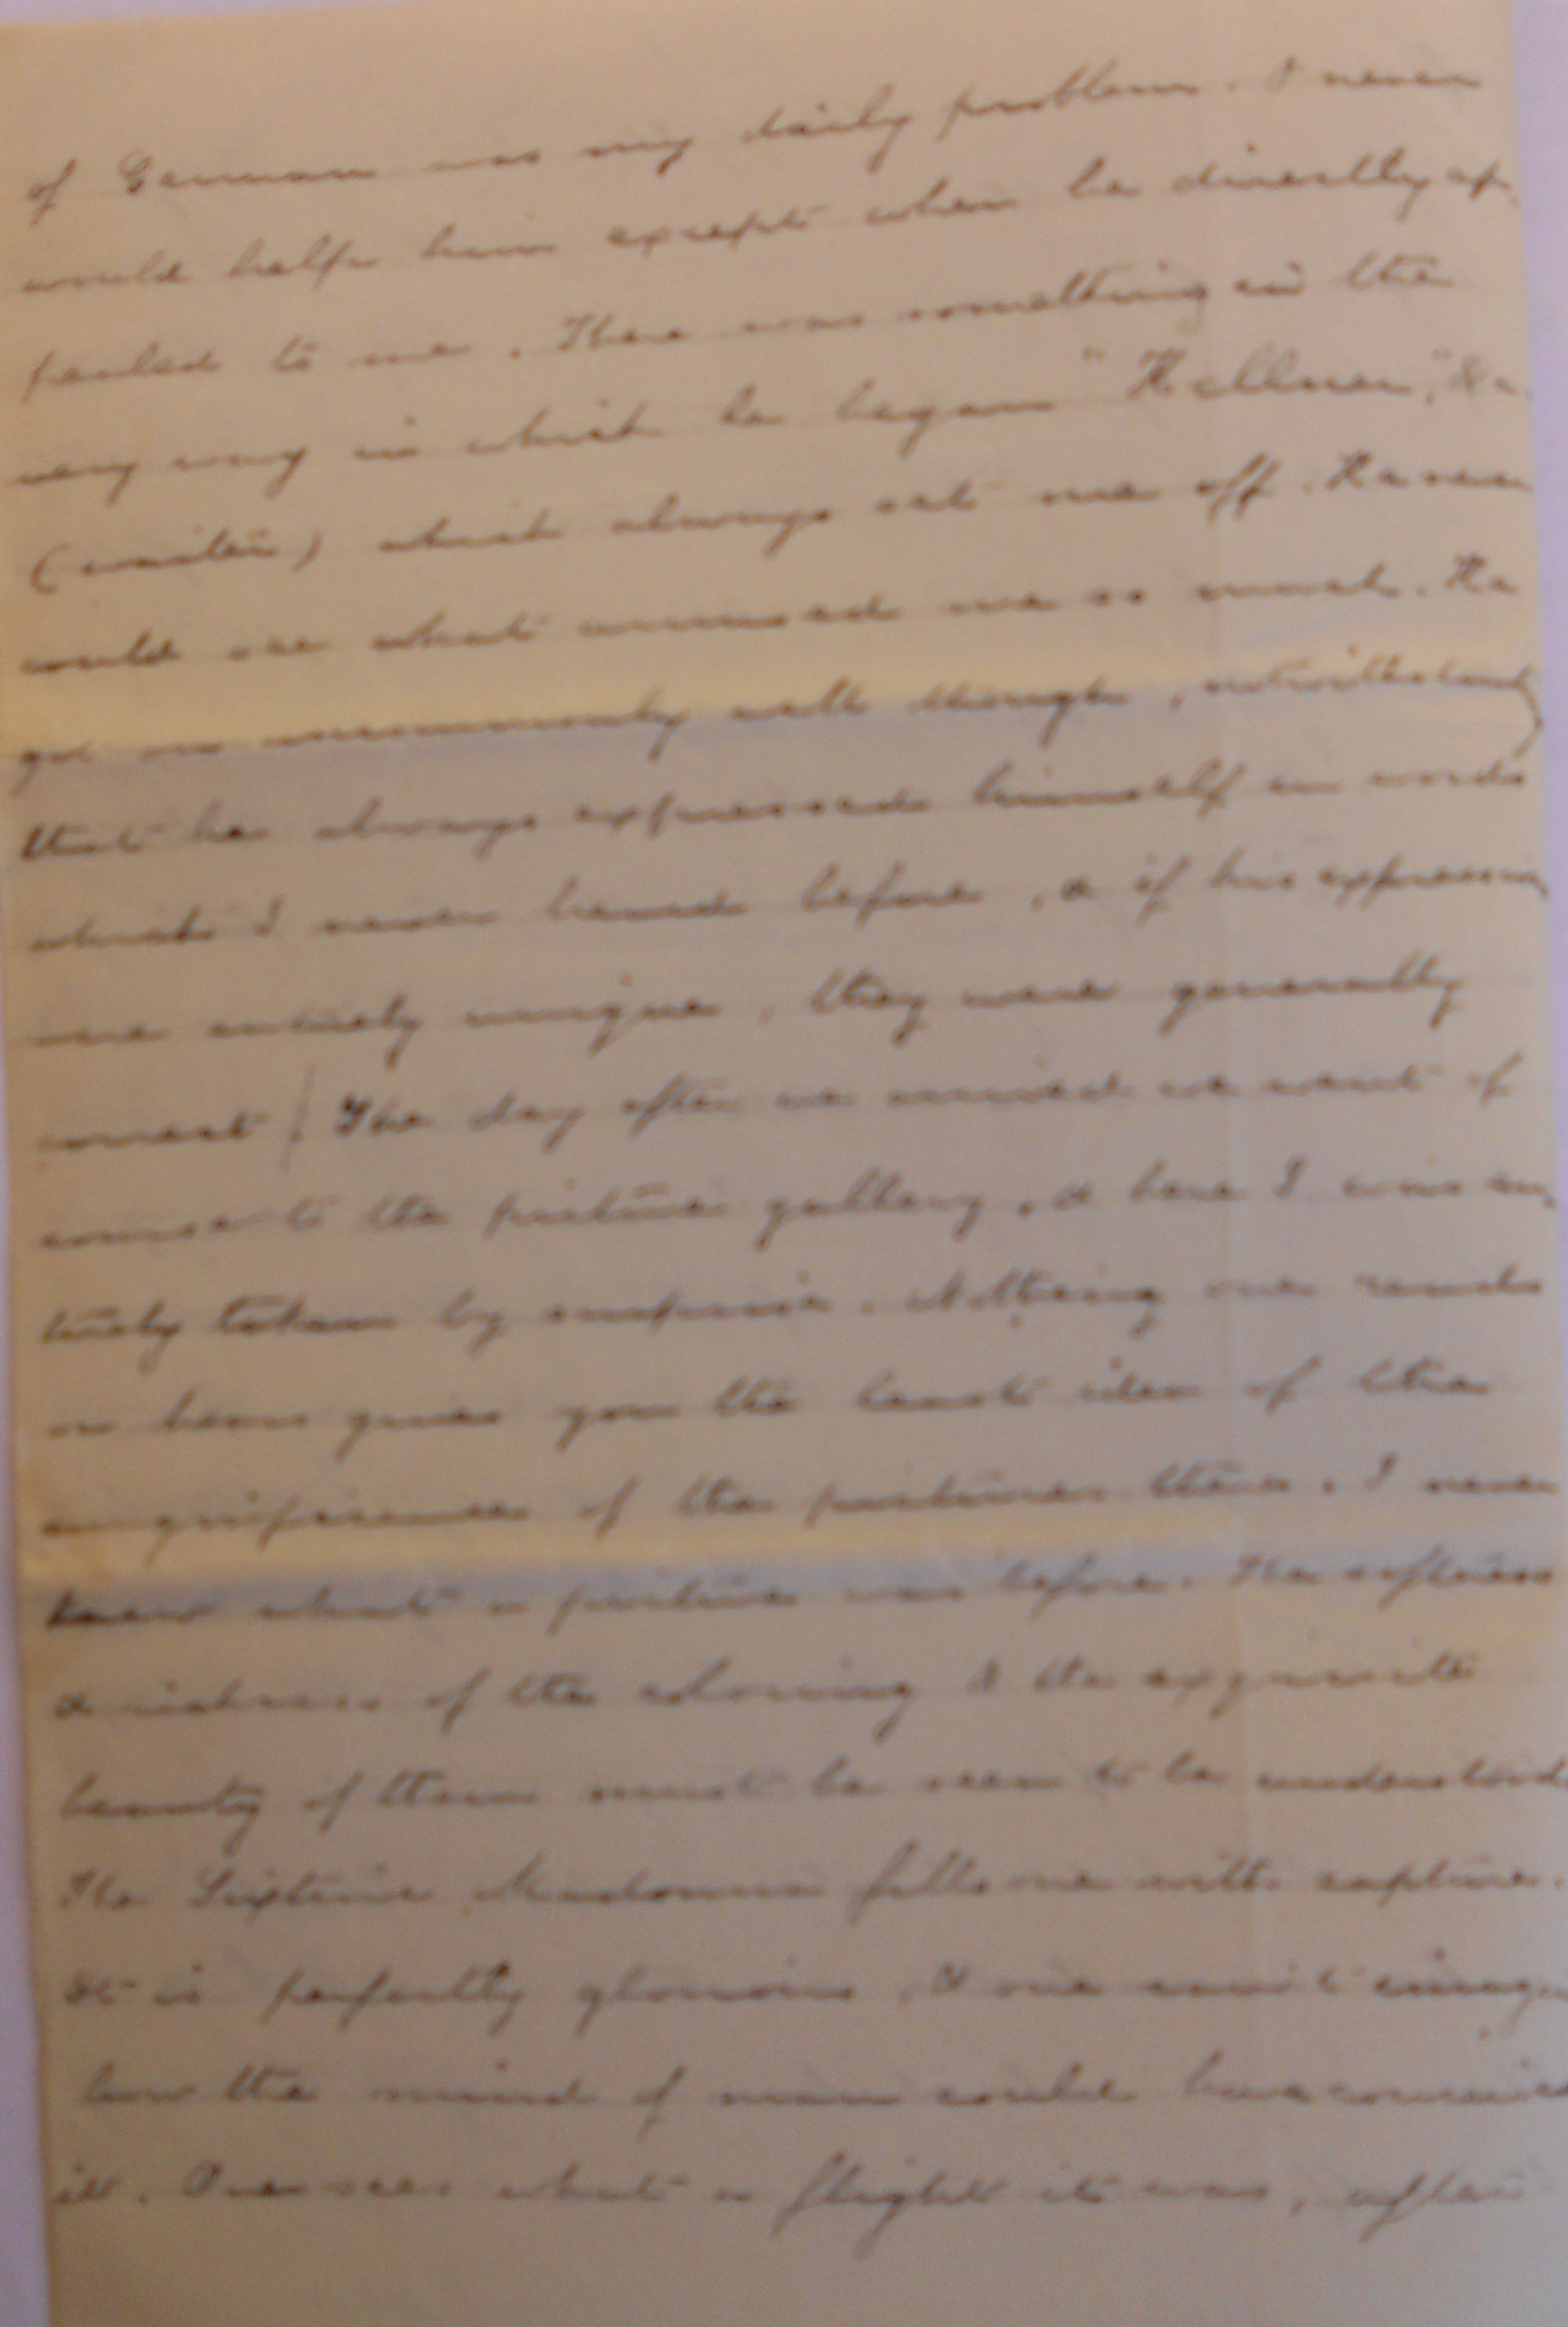 of German was my daily problem. I never
would help him except when he directly ap-
pealed to me. There was something in the
very way in which he began "Kellner,"
(waiter) which always set me off. He never
could see what amused me so much. He
got on uncommonly well though, notwithstanding
that he always expressed himself in words
which I never heard before, & if his expressions
were entirely unique, they were generally
correct! The day after we arrived we went of
course to the picture gallery, & here I was en-
tirely taken by surprise. Nothing one reads
or hears gives you the least idea of the
magnificence of the pictures there. I never
knew what a picture was before. The softness
& richness of the coloring & the exquisite
beauty of them must be seen to be understood
The Sixtine Madonna fills one with rapture.
It is perfectly glorious, & one can't imagine
how the mind of man could have conceived
it. One sees what a flight it was, after